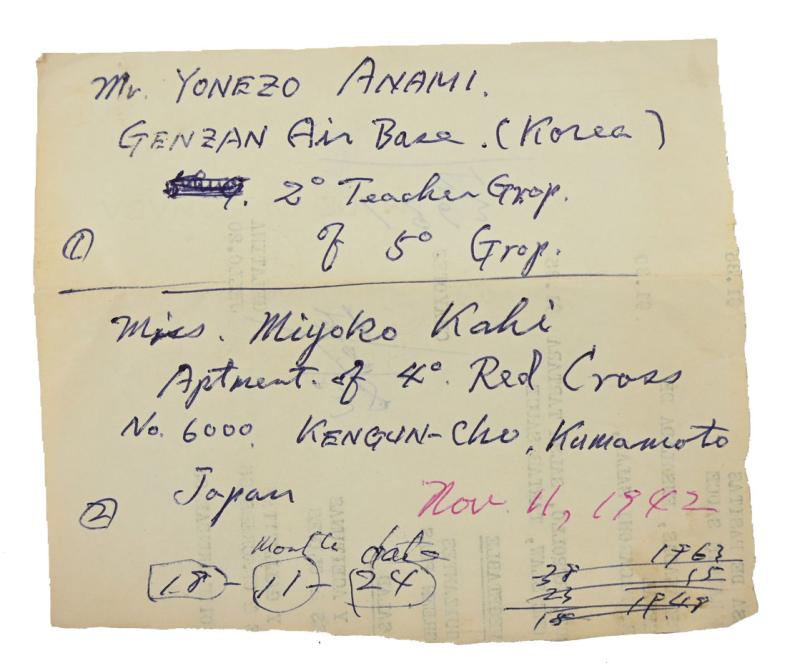 Mr. YONEZO ANAMI.
GENZAN Air Base. (Korea)
2° Teacher Grop.
① of 5° Grop.
Miss. Miyoko Kahi
Aptment. of 4°. Red Cross
No. 6000. KENGUN-Cho, Kumamoto
Japan
②
Nov. 11, 1942
Month date
18-11-24
38 1963
23 15
18 1948